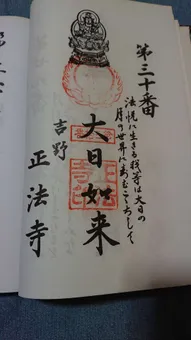 第三十番
法悦に生きる我等は大日の
月の世界に ここちして
大日如来
吉野
正法寺